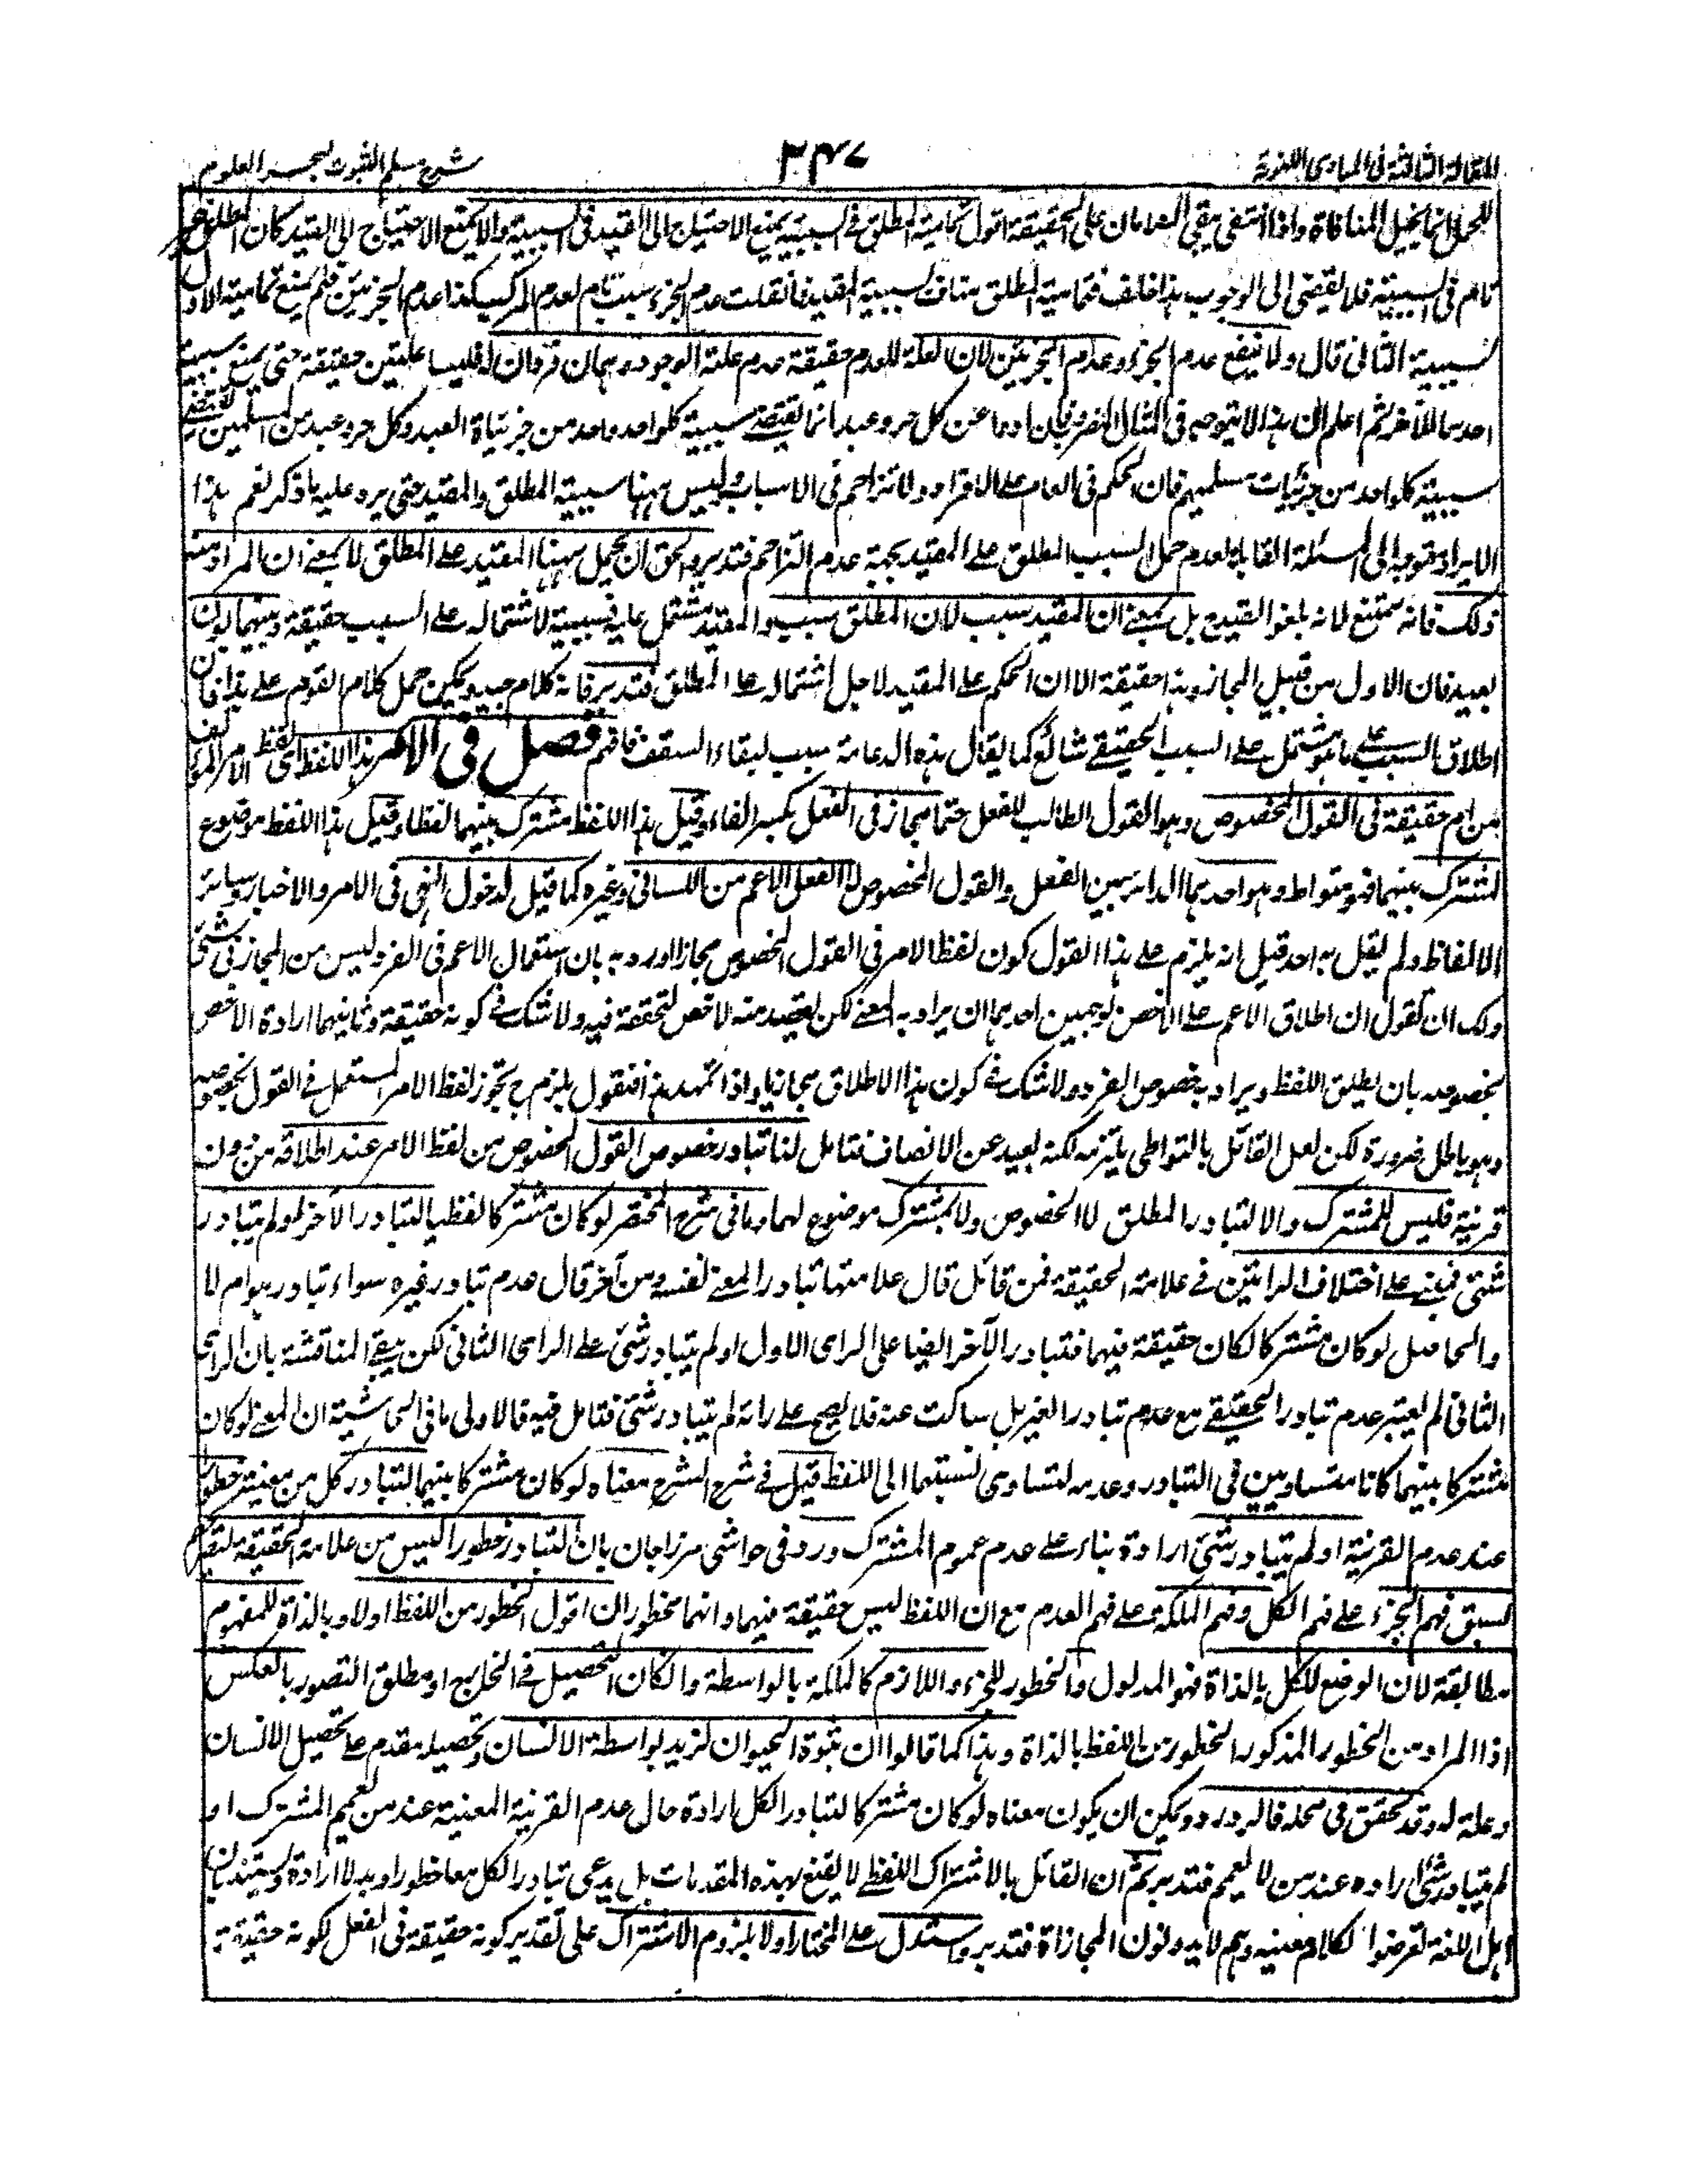 المقالة الثالثة فى المبادى اللغوية ٣٤٧ شرح مسلم الثبوت لبحر العلوم
للحمل انما يخيل المنافاة واذا انتفى يبقى العامان على الحقيقة اقول تمامية المطلق فى السببية يمنع الاحتياج الى القيد فى السببية والا يمنع الاحتياج الى القيد كان المطلق غير
تام فى السببية فلا يقتضى الى الوجوب هذا خلف فتمامية المطلق مناف لسببية المقيد فان قلت عدم الجزء سبب تام لعدم المركب كذا عدم الجزئين فلم يمنع تمامية الاول
لسببية الثانى قال ولا ينفع عدم الجزء وعدم الجزئين لان العلة للعدم حقيقة عدم علة الوجود وهما فردان فليسا علتين حقيقة حتى يمنع سببية
احدهما للآخر ثم اعلم ان هذا لا يتوجه فى المثال المضروب فان ادوا عن كل حر وعبد انما تقتضى سببية كل واحد واحد من جزئيات العبد وكل حر وعبد من المسلمين يقتضى
سببية كل واحد من جزئيات مسلميهم فان الحكم فى العام على الافراد ولا تزاحم فى الاسباب وليس ههنا سببية المطلق والمقيد حتى يرد عليه ما ذكر نعم هذا
الايراد متوجه الى المسئلة القائلة لعدم حمل السبب المطلق على المقيد بحجة عدم التزاحم فتدبر والحق ان يحمل ههنا المقيد على المطلق لا بمعنى ان المراد منه
ذلك فانه ممتنع لانه يلغو القيد ح بل بمعنى ان المقيد سبب لان المطلق سبب والمقيد مشتمل عليه فسببية لاشتماله على السبب حقيقة وبينهما بون
بعيد فان الاول من قبيل المجاز وهذا حقيقة الا ان الحكم على المقيد لاجل اشتماله على المطلق فتدبر فانه كلام جيد ويمكن حمل كلام القوم على هذا فان
اطلاق السبب على ما هو مشتمل على السبب الحقيقى شائع كما يقال هذه الدعامة سبب لبقاء السقف فافهم فصل فى الامر هذا اللفظ اى لفظ الامر المؤلف
من ا م ر حقيقة فى القول المخصوص وهو القول الطالب للفعل حتما مجاز فى الفعل بكسر الفاء وقيل هذا اللفظ مشترك بينهما لفظا وقيل هذا اللفظ موضوع
لمشترك بينهما فهو متواط وهو احدهما الدائر بين الفعل والقول المخصوص لا الفعل الاعم من اللسانى وغيره كما قيل لدخول النهى فى الامر والاخبار وسائر
الالفاظ ولم يقل به احد قيل انه يلزم على هذا القول كون لفظ الامر فى القول المخصوص مجازا ورد به بان استعمال الاعم فى الفرد ليس من المجاز فى شئ
ولك ان تقول ان اطلاق الاعم على الاخص لوجهين احدهما ان يراد به المعنى لكن يقصد منه الاخص لتحققه فيه ولا شك فى كونه حقيقة وثانيهما ارادة الاخص
بخصوصه بان يطلق اللفظ ويراد به خصوص الفرد ولا شك فى كون هذا الاطلاق مجازيا واذا تمهد هذا فنقول يلزم ح تجوز لفظ الامر المستعمل فى القول بخصوصه
وهو باطل ضرورة لكن لعل القائل بالتواطى يلتزمه لكنه بعيد عن الانصاف فتامل لنا تبادر خصوص القول المخصوص من لفظ الامر عند اطلاقه من دون
قرينة فليس للمشترك والا لتبادر المطلق لا الخصوص ولا بمشترك موضوع لهما وما فى شرح المختصر لو كان مشتركا لفظيا لتبادر الآخر او لم يتبادر
شئ فمبنى على اختلاف الرائين فى علامة الحقيقة فمن قائل قال علامتها تبادر المعنى لنفسه ومن آخر قال عدم تبادر غيره سواء تبادر هو ام لا
والحاصل لو كان مشتركا لكان حقيقة فيهما فتبادر الآخر ايضا على الراى الاول او لم يتبادر شئ على الراى الثانى لكن تبقى المناقشة بان الراى
الثانى لم يعتبر عدم تبادر الحقيقى مع عدم تبادر الغير بل ساكت عنه فلا يصح على رائه لم يتبادر شئ فتامل فيه فالاولى ما فى الحاشية ان المعنى لو كان
مشتركا بينهما كانا متساويين فى التبادر وعدمه لتساوى نسبتهما الى اللفظ قيل فى شرح الشرح معناه لو كان مشتركا بينهما لتبادر كل من معنيه خطورا
عند عدم القرينة او لم يتبادر شئ ارادة بناء على عدم عموم المشترك ورد فى حواشى مرزاجان بان التبادر خطورا ليس من علامة الحقيقة
لسبق فهم الجزء على فهم الكل وفهم الملكة على فهم العدم مع ان اللفظ ليس حقيقة فيهما وانما يخطران اقول الخطور من اللفظ اولا وبالذات للمفهوم
مطابقة لان الوضع للكل بالذات فهو المدلول والخطور للجزء واللازم كالملكة بالواسطة وان كان التحصيل فى الخارج او مطلق التصور بالعكس
اذا المراد من الخطور المذكور الخطور من اللفظ بالذات وهذا كما قالوا ان ثبوت الحيوان لزيد بواسطة الانسان وتحصيله مقدم على تحصيل الانسان
وعلة له وقد تحقق فى محله فالرد رد ويمكن ان يكون معناه لو كان مشتركا لتبادر الكل ارادة حال عدم القرينة المعنية عند من يعمم المشترك او
لم يتبادر شئ ارادة عند من لا يعمم فتدبر ثم ان القائل بالاشتراك اللفظى لا يقنع بهذه المقدمات بل يدعى تبادر الكل معا خطورا وبدلا ارادة
اهل اللغة تعرضوا لكلا معنييه وهم لا يدونون المجازات فتدبر واستدل على المختار اولا بلزوم الاشتراك على تقدير كونه حقيقة فى الفعل لكونه حقيقة